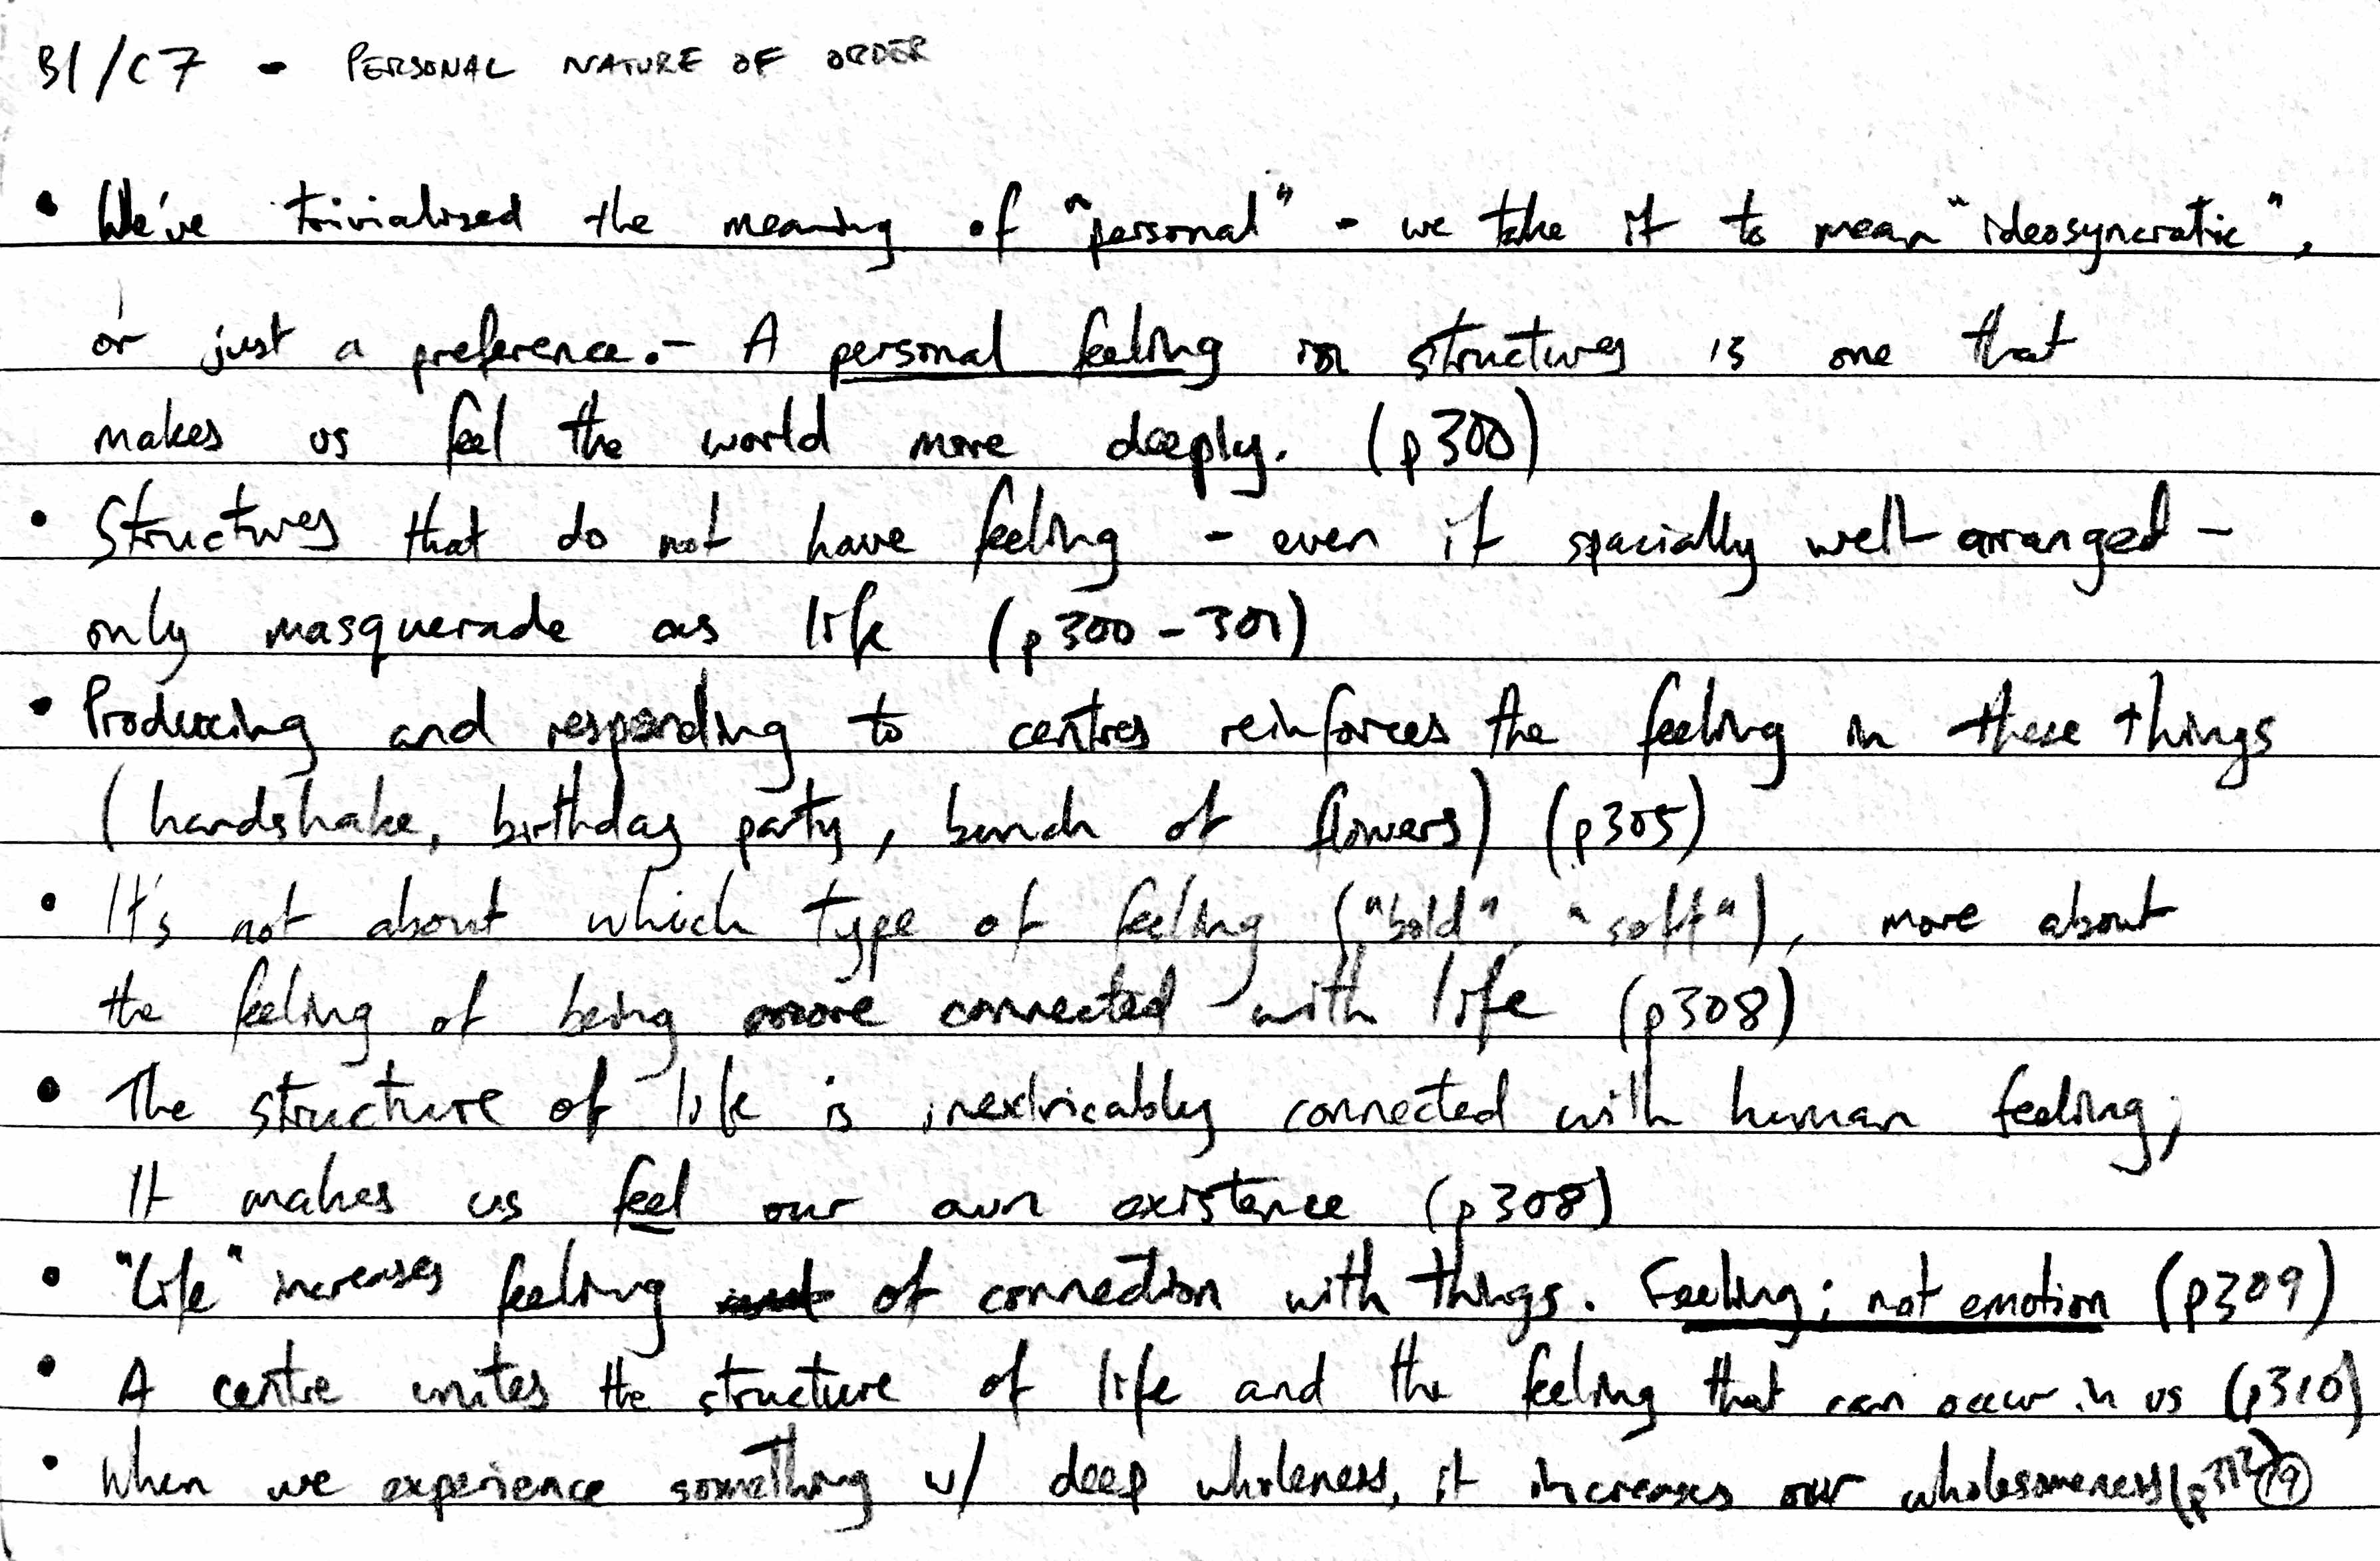 B1/C7 - PERSONAL NATURE OF ORDER
• We've trivialised the meaning of "personal" - we take it to mean "ideosyncratic",
or just a preference. - A personal feeling or structures is one that
makes us feel the world more deeply. (p300)
• Structures that do not have feeling - even if spacially well-arranged -
only masquerade as life (p300-301)
• Producing and responding to centres reinforces the feeling in these things
(handshake, birthday party, bunch of flowers) (p305)
• It's not about which type of feeling ("bold", "soft"), more about
the feeling of being more connected with life (p308)
• The structure of life is inextricably connected with human feeling;
It makes us feel our own existence (p308)
• "Life" increases feeling of connection with things. Feeling; not emotion (p309)
• A centre unites the structure of life and the feeling that can occur in us (p310)
• When we experience something w/ deep wholeness, it increases our wholesomeness (p312) 19